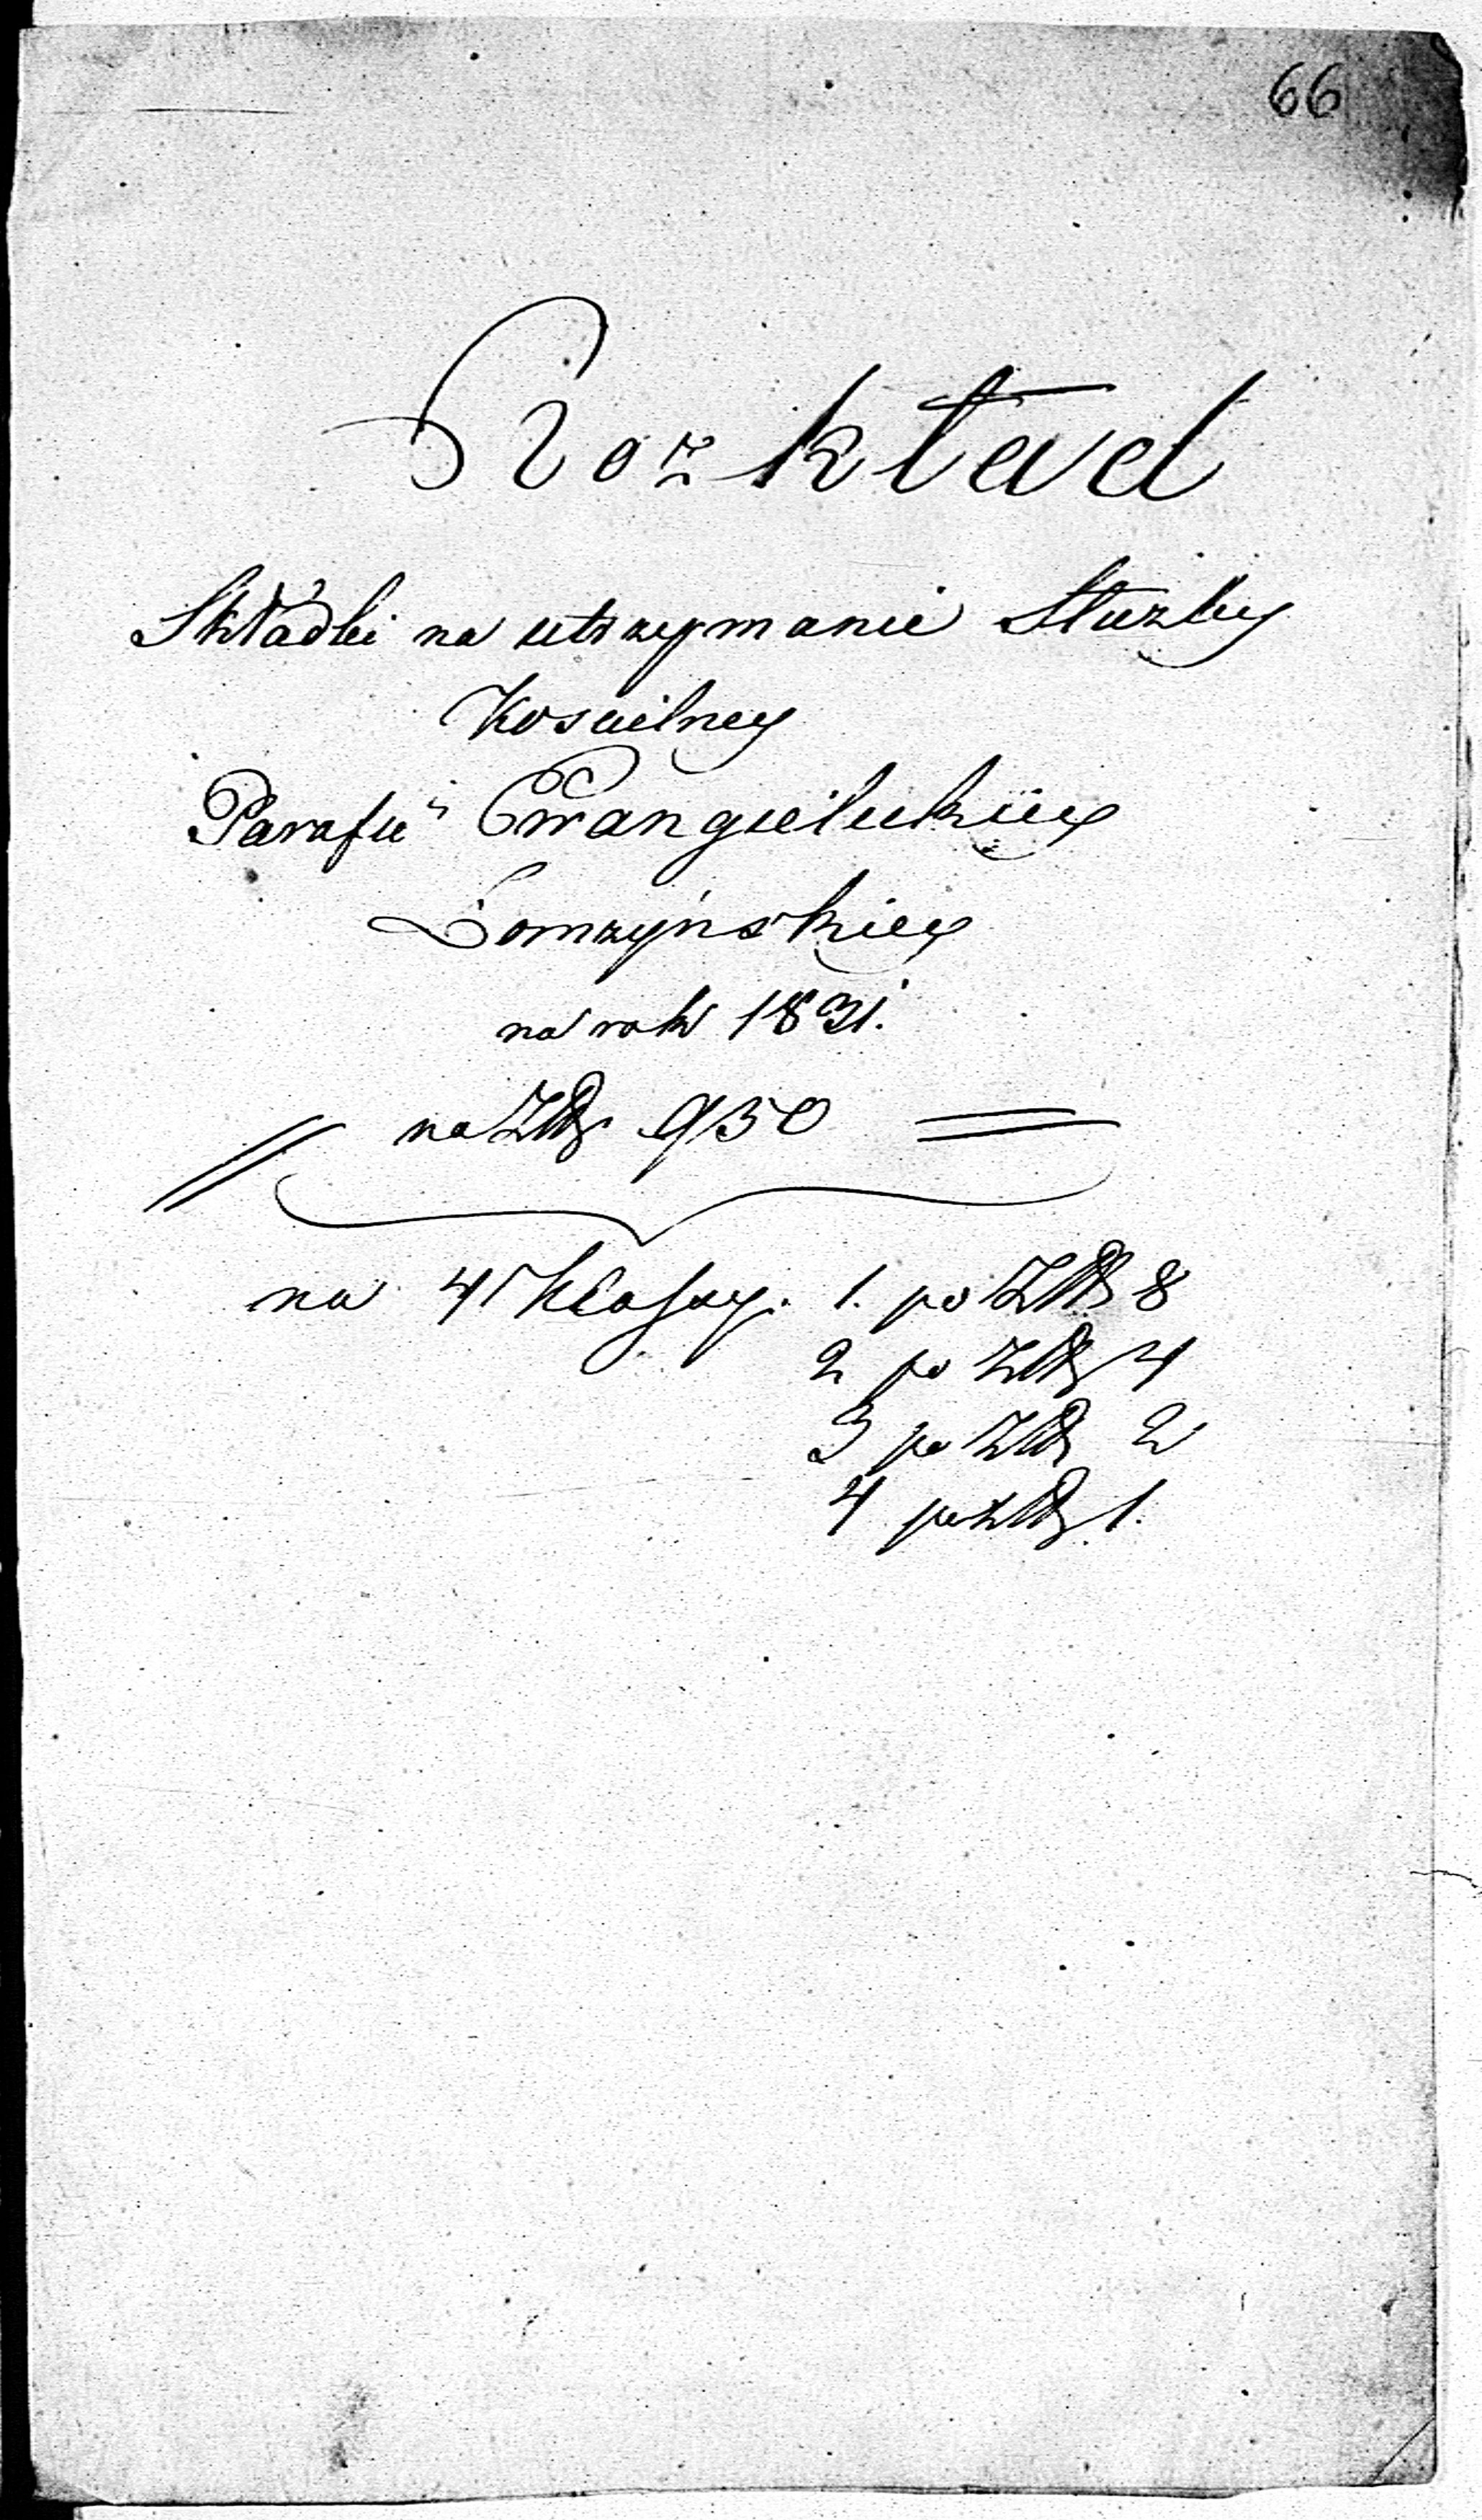 66
Rozkład
Składki na utrzymanie Służby
Kościelney
Parafii Ewangielickiey
Łomżyńskiey
na rok 1831.
na Złp 950
na 4 Klassy. 1. po Złp 8
2 po Złp 4
3 po Złp 2
4 po Złp 1.